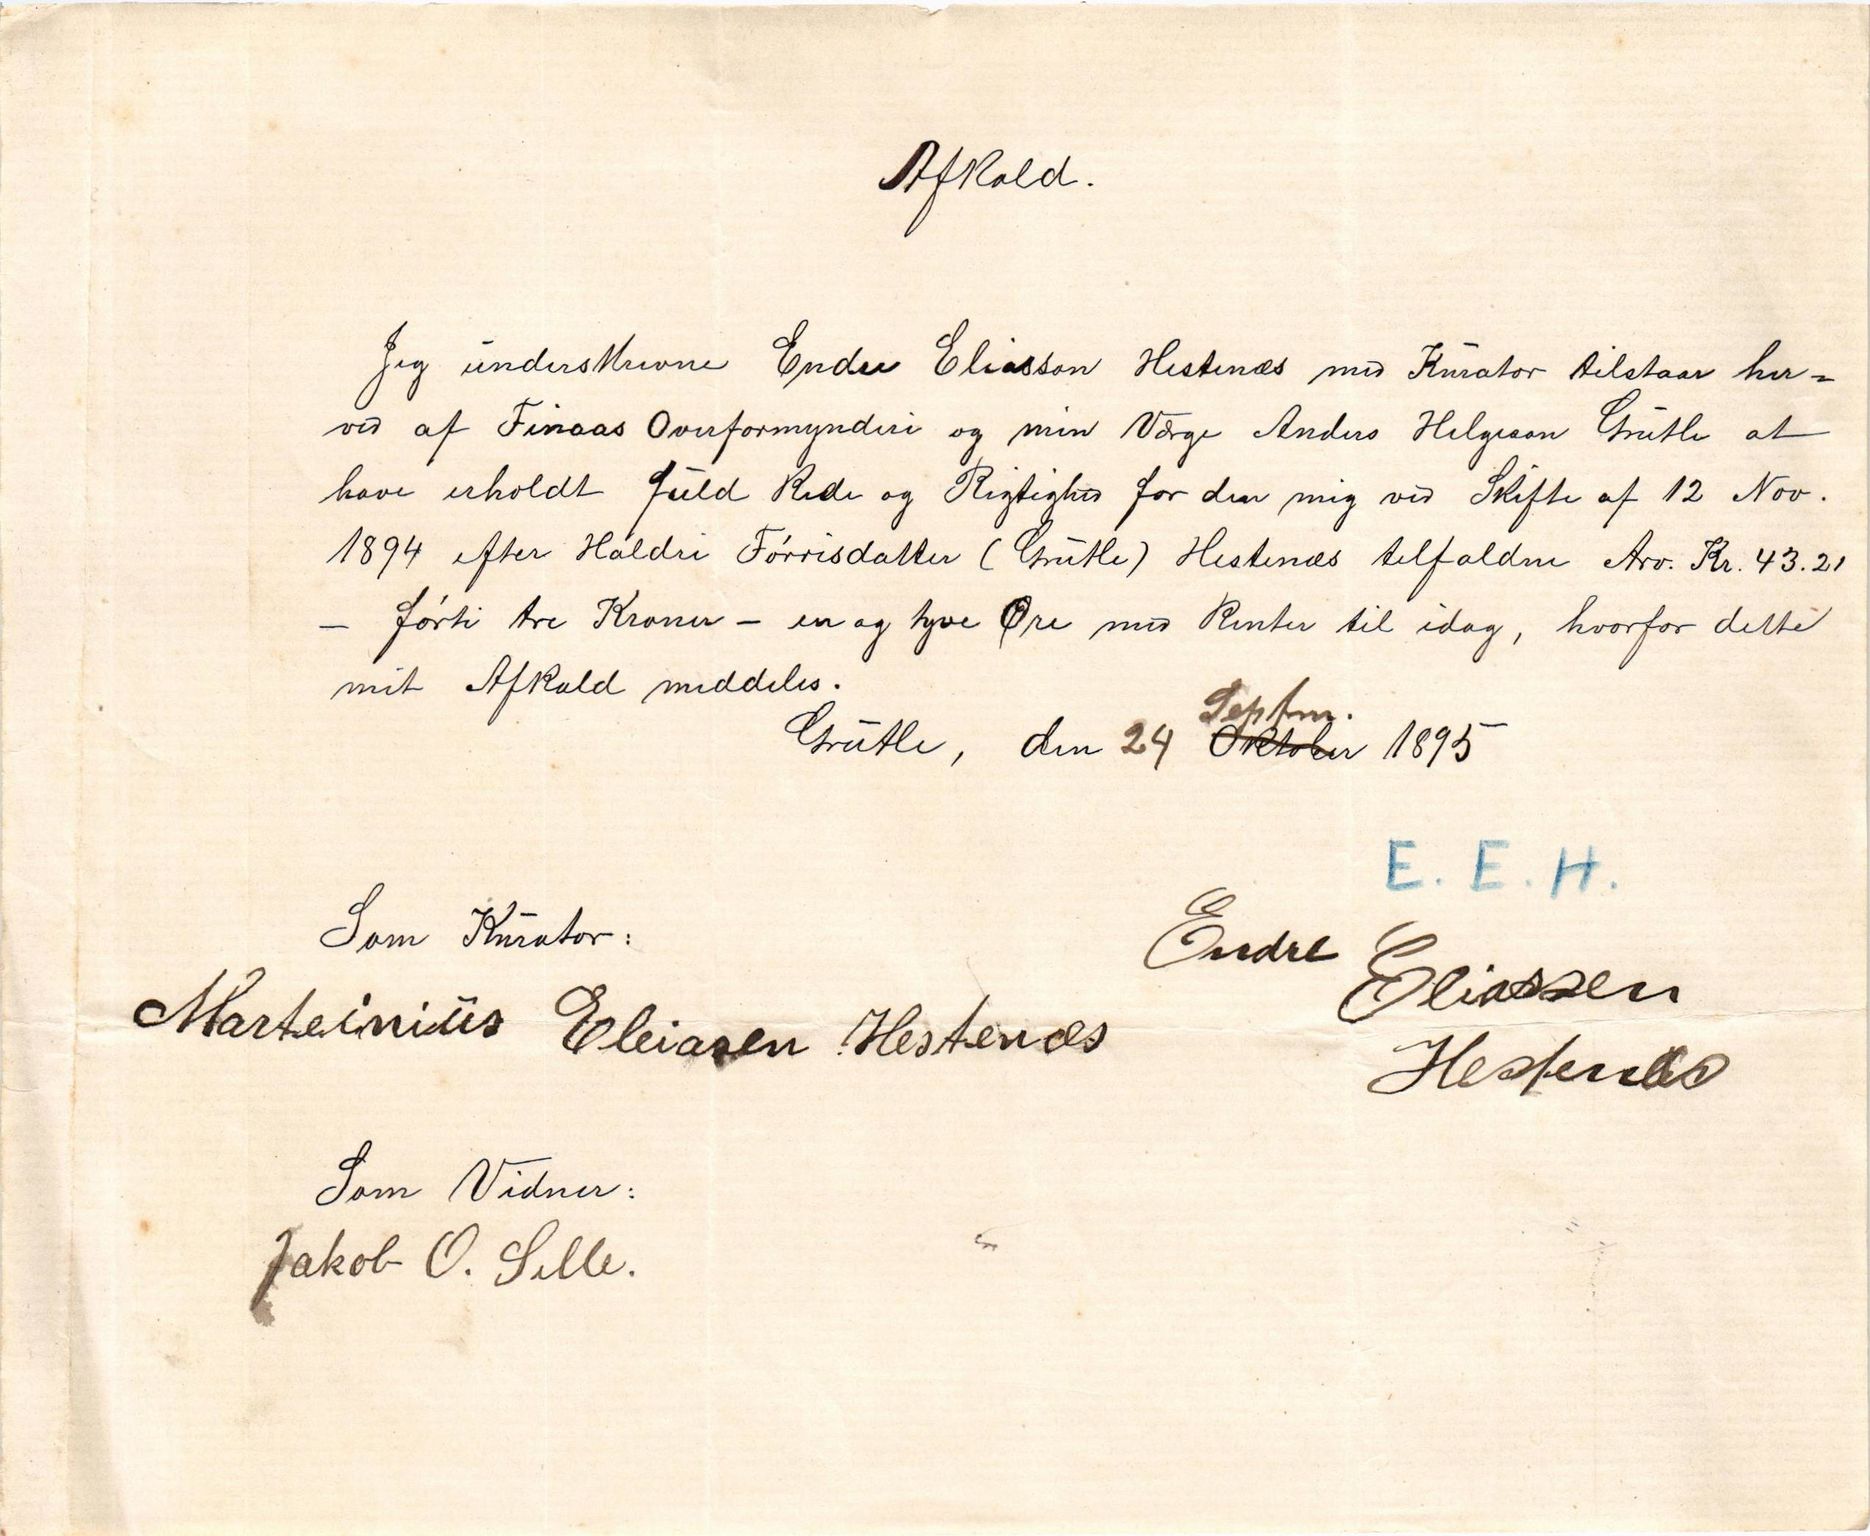 Afkald.
Jeg underskrevne Endre Eliasson Hestenæs med Kurator tilstaar her=
ved af Finaas Overformynderi og min Værge Anders Helgeson Grutle at
have erholdt fuld Rede og Rigtighed for den mig ved Skifte af 12 Nov.
1894 efter Haldri Tórrisdatter (Grutle) Hestenæs tilfaldne Arv. Kr. 43.21
— fórti tre Kroner — en og tyve Øre med Renter til idag, hvorfor dette
mit Afkald meddeles.
Septm.
Grutle, den 24 Oktober 1895
E. E. H.
Som Kurator:
Endre Eliassen
Marteinius Eleiasen Hestenæs
Hestenæs
Som Vidner:
Jakob O. Selle.